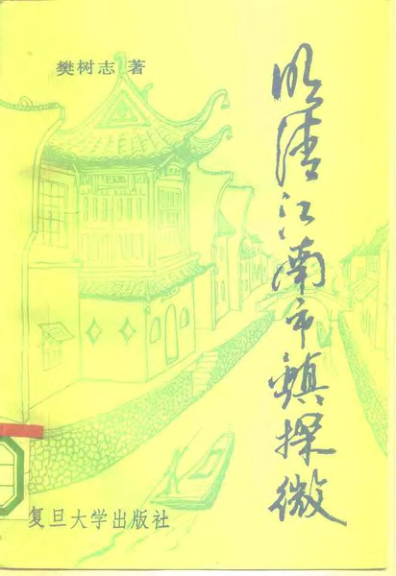 樊树志 著
明清江南市鎮探微
复旦大学出版社